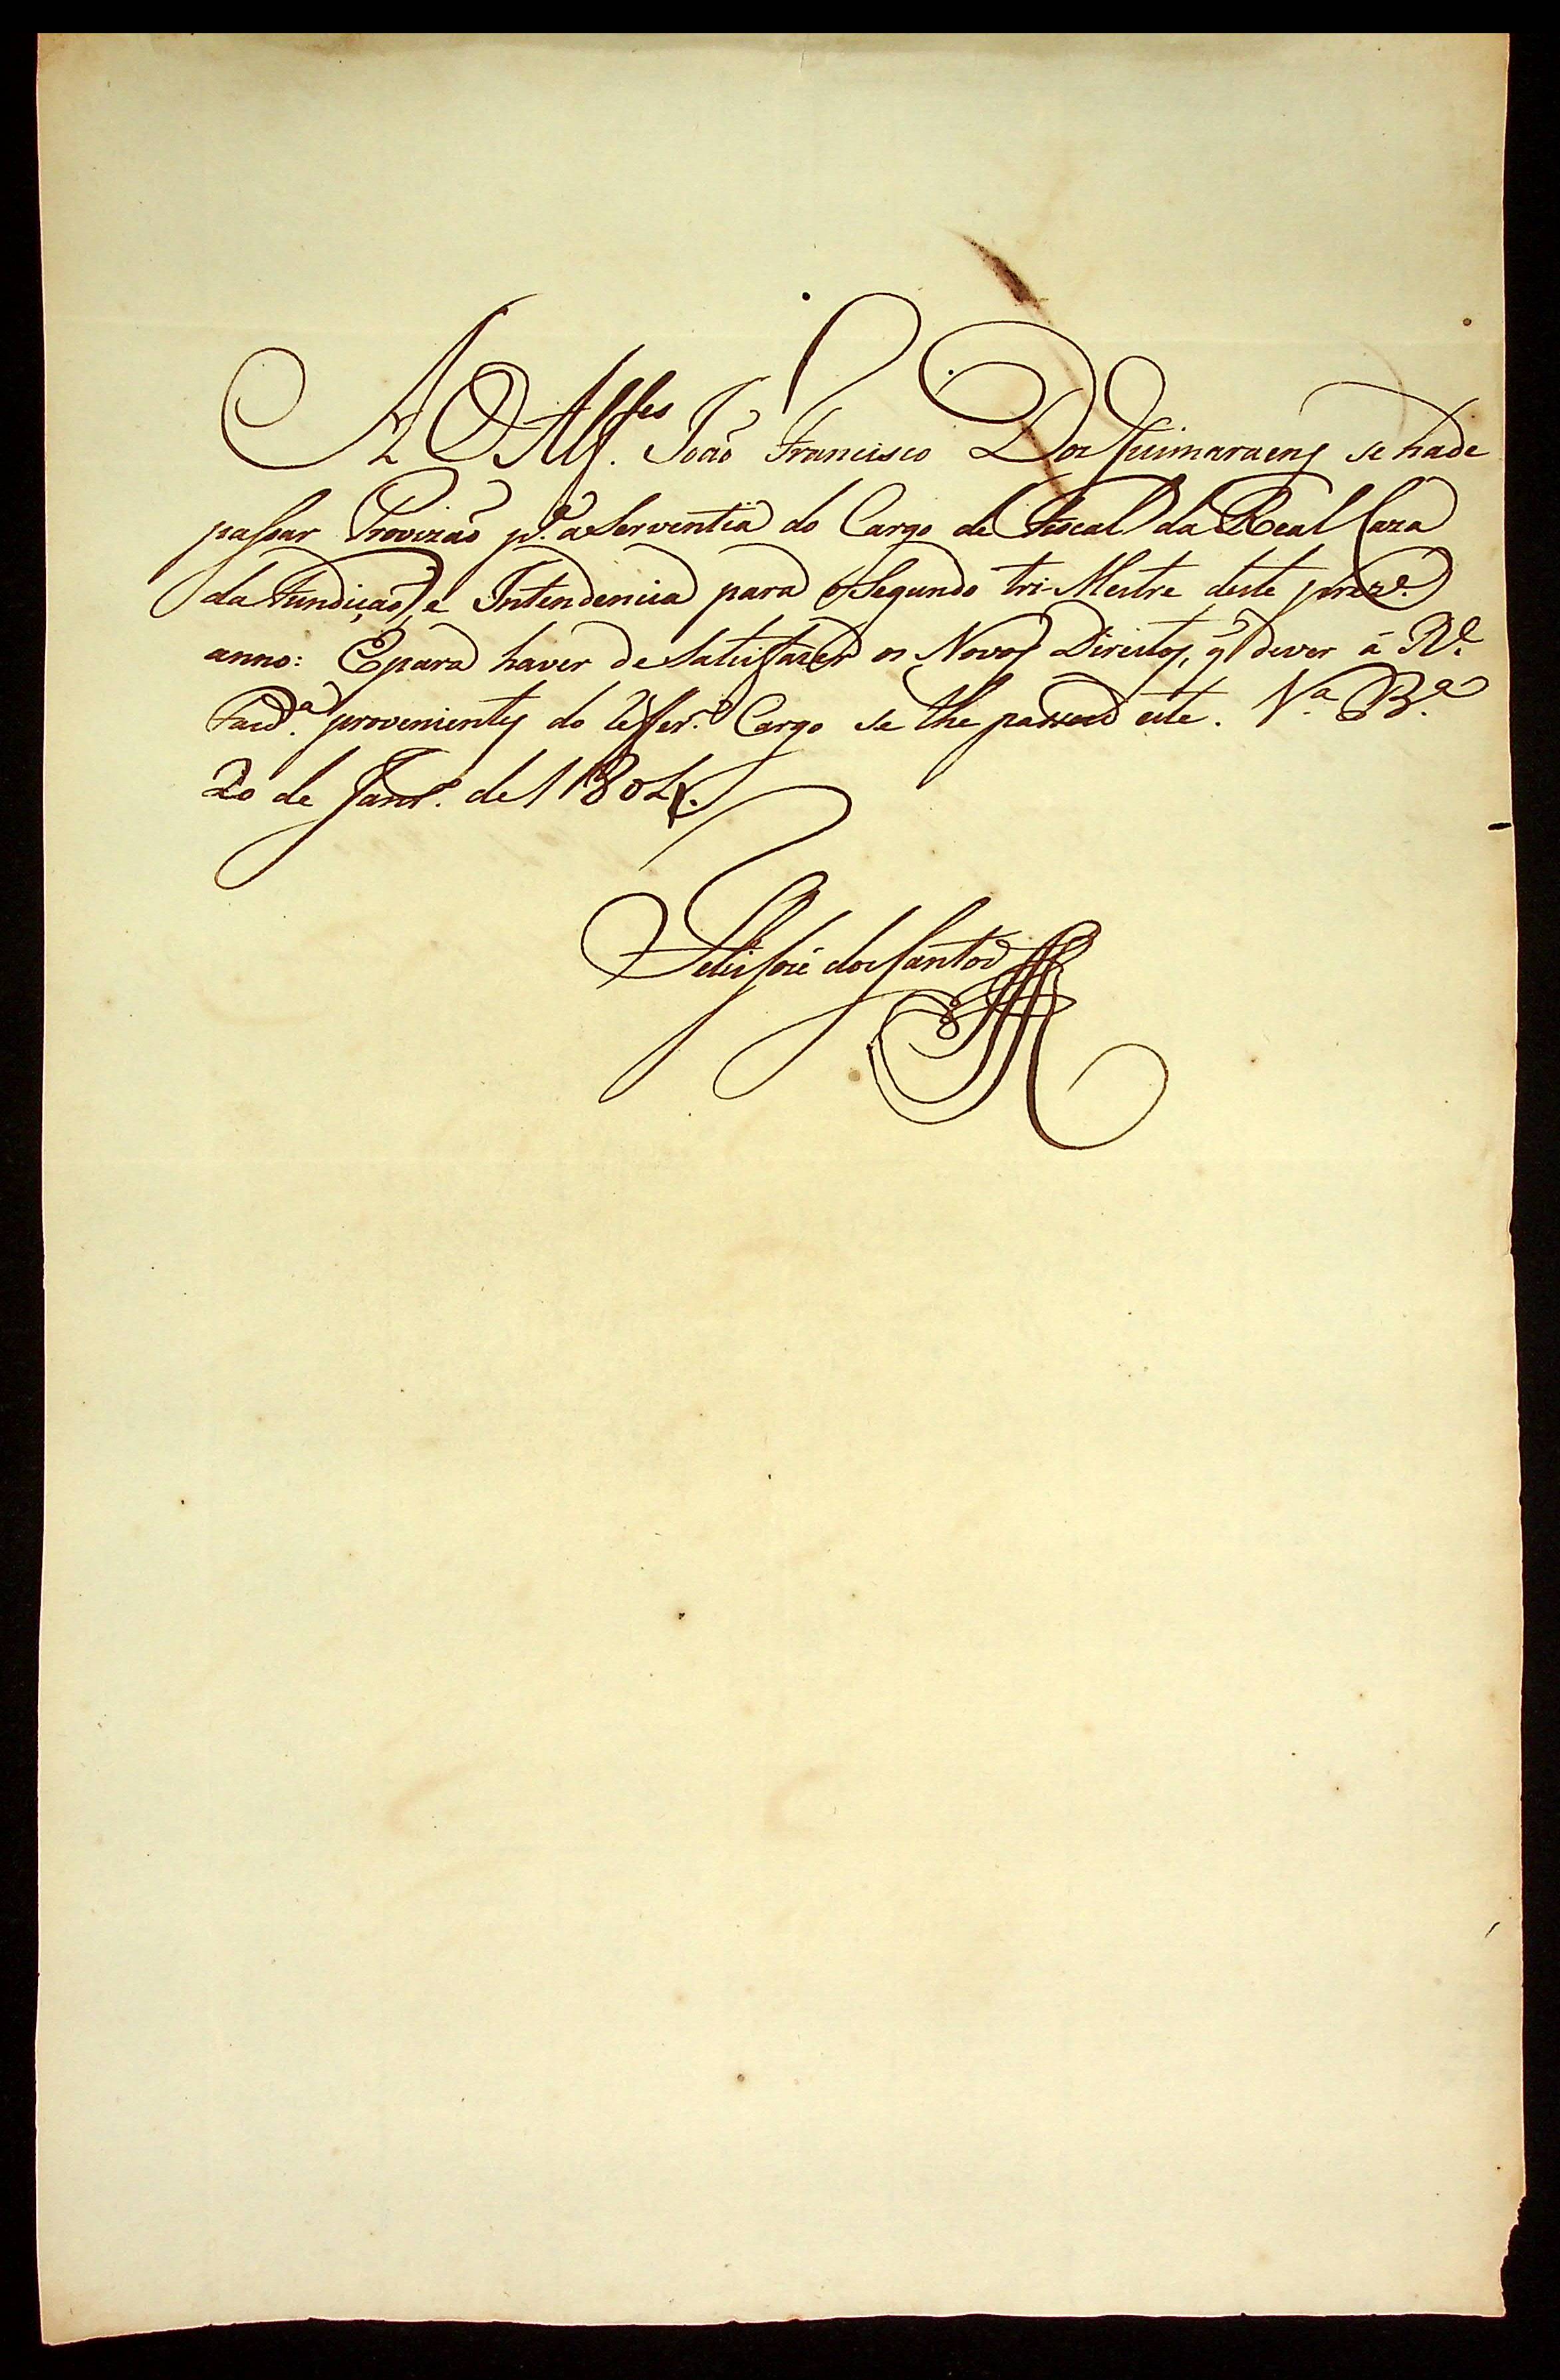 AO Alfes. João Francisco Dos Guimaraens se hade
passar Provizão pª. a Serventia do Cargo de Fiscal da Real Caza
da Fundição, e Intendencia para o Segundo tri-Mestre deste preze.
anno: E para haver de Satisfazer os Novos Direitos, q̃ dever á Rl.
Fazdª. provenientes do reffer.º Cargo se lhe passou este. Vª. Bª.
20 de Janr.º de 1804.
Felis José dos Santos